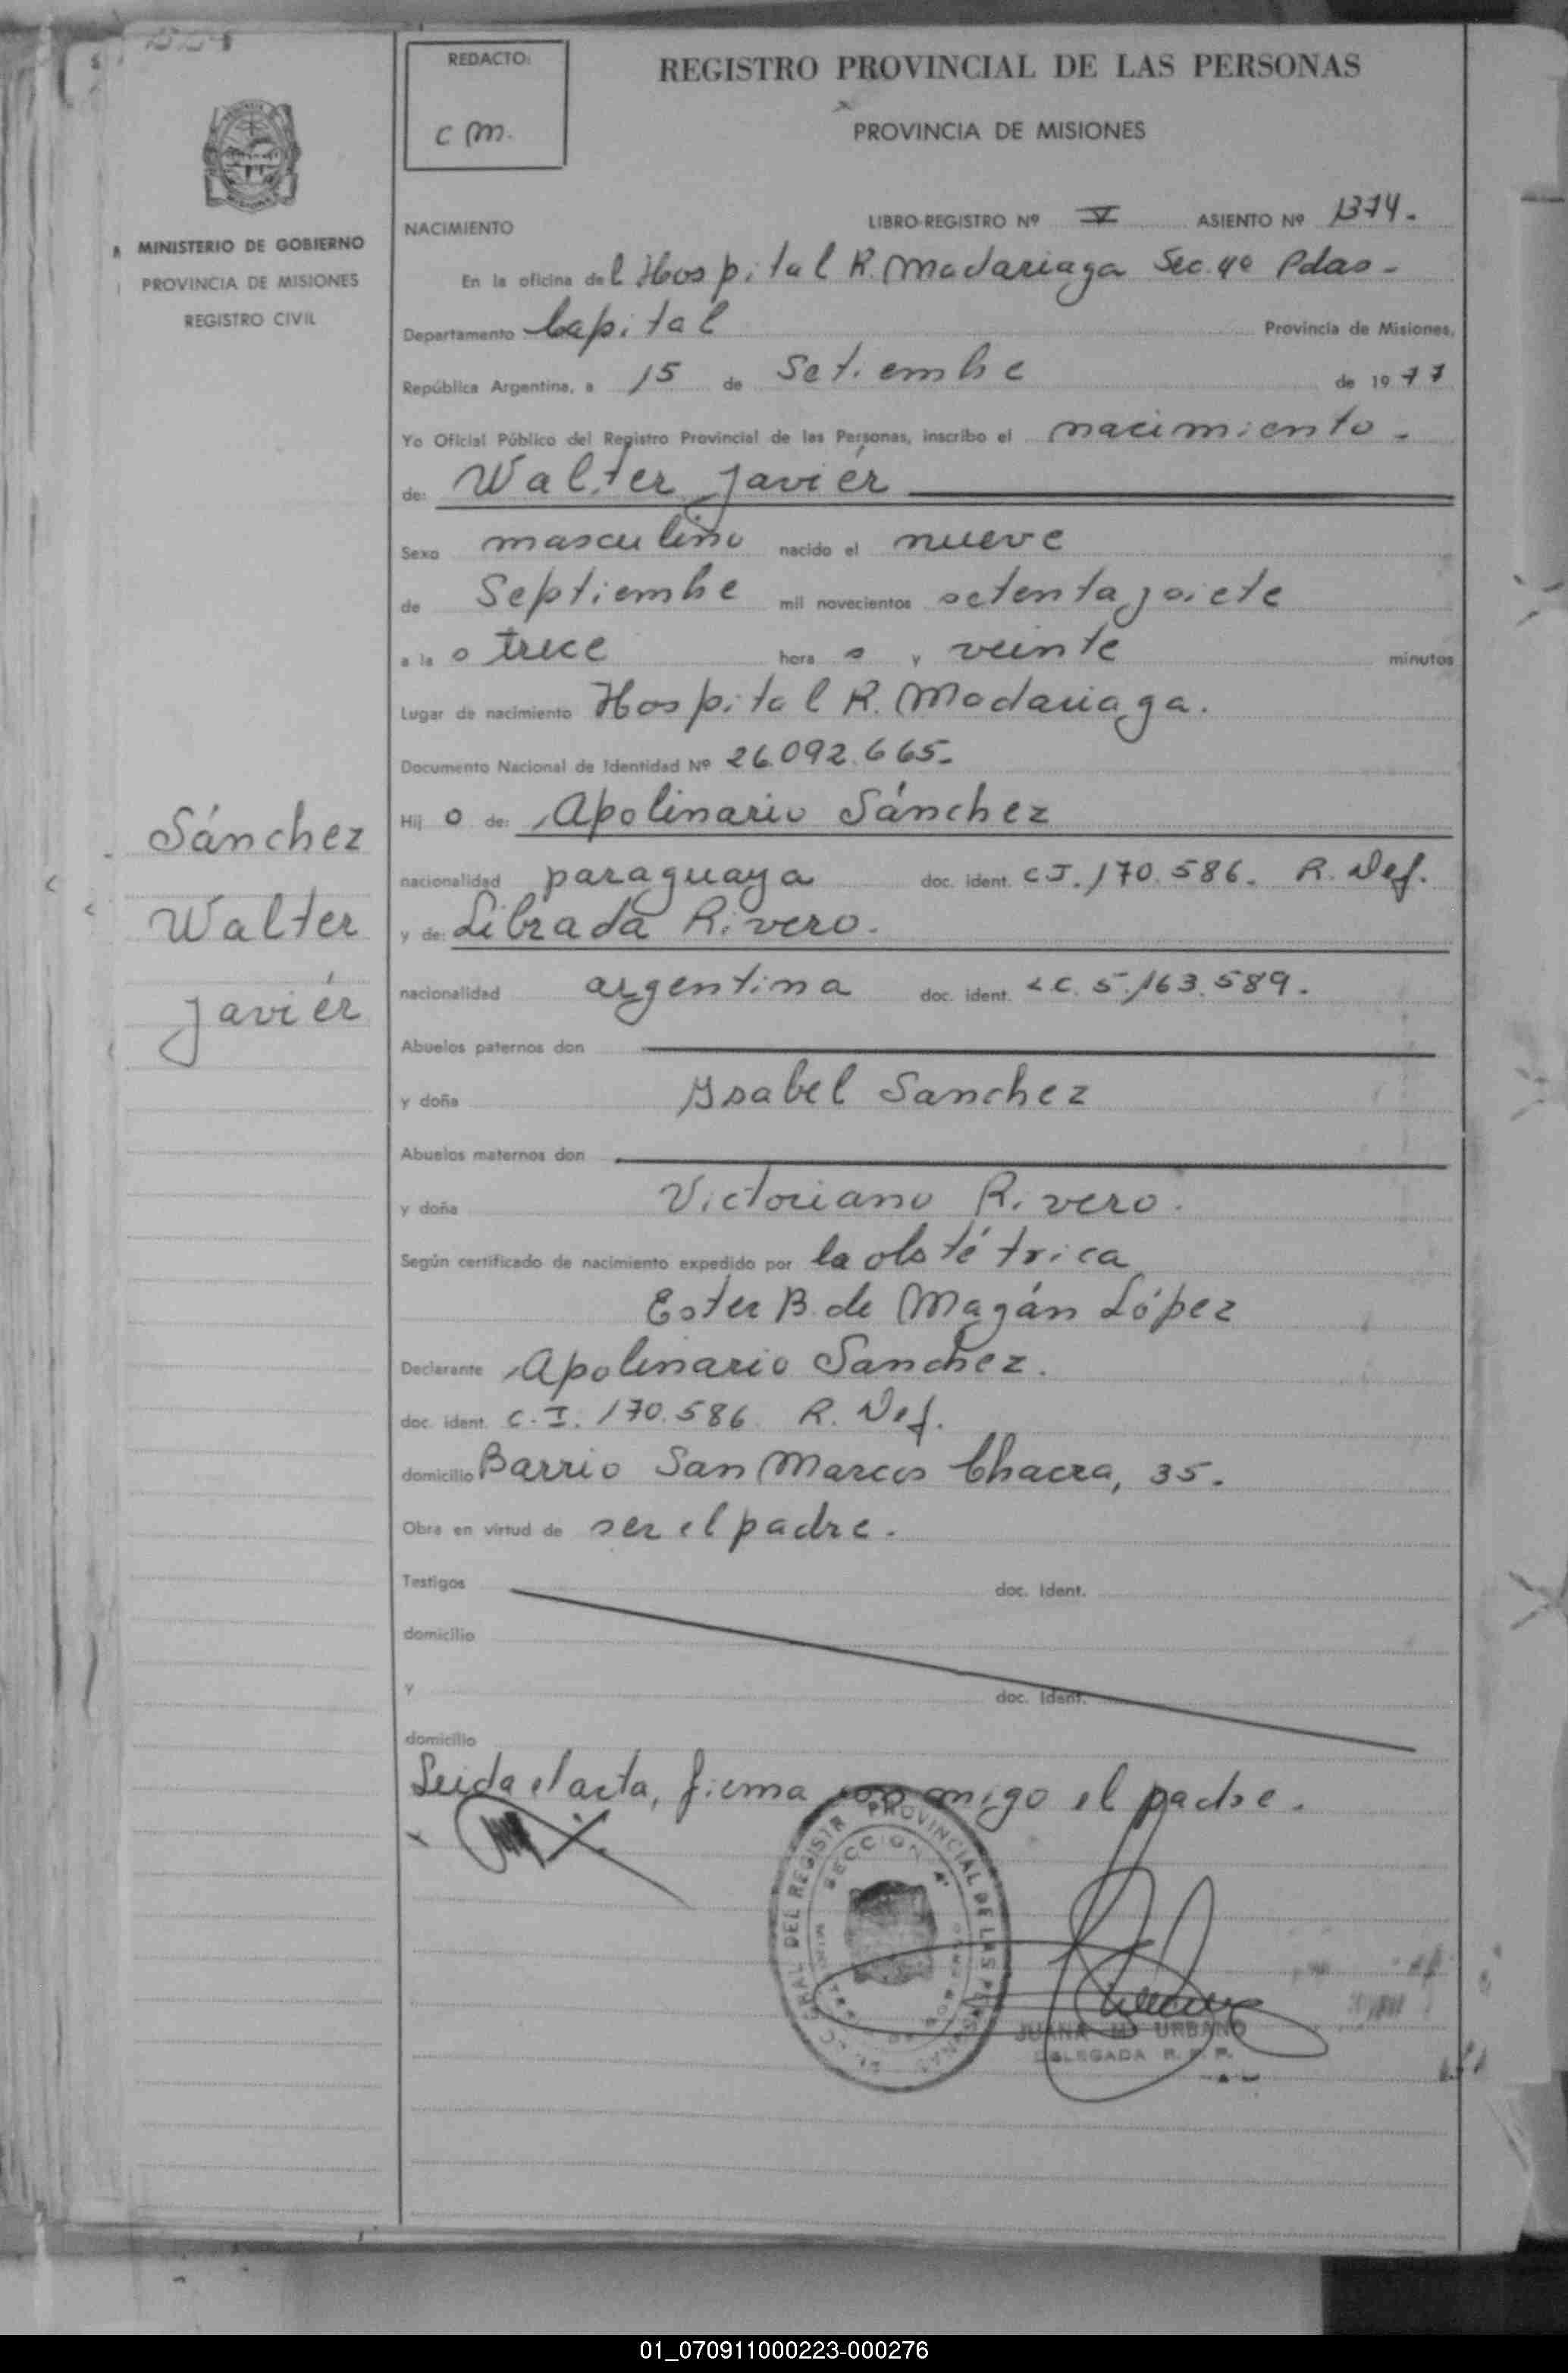 REDACTO:
C M.
REGISTRO PROVINCIAL DE LAS PERSONAS
PROVINCIA DE MISIONES
MINISTERIO DE GOBIERNO
PROVINCIA DE MISIONES
REGISTRO CIVIL
NACIMIENTO LIBRO-REGISTRO Nº V ASIENTO Nº 1374.
En la oficina del Hospital R. Madariaga Sec. 4ª Pdas-
Departamento Capital Provincia de Misiones,
República Argentina, a 15 de Setiembre de 1977
Yo Oficial Público del Registro Provincial de las Personas, inscribo el nacimiento.
de: Walter Javiér
Sexo masculino nacido el nueve
de Septiembre mil novecientos setenta y siete
a la s trece hora s y veinte minutos
Lugar de nacimiento Hospital R. Madariaga.
Documento Nacional de Identidad Nº 26.092.665.
Hij o de: Apolinario Sánchez
nacionalidad paraguaya doc. ident. C I. 170.586. R. Def.
y de: Librada Rivero.
nacionalidad argentina doc. ident. L C. 5.163.589.
Sánchez
Walter
Javiér
Abuelos paternos don
y doña Ysabel Sanchez
Abuelos maternos don
y doña Victoriano Rivero.
Según certificado de nacimiento expedido por la obstétrica
Ester B. de Magán López
Declarante Apolinario Sanchez.
doc. ident. C. I. 170.586 R. Def.
domicilio Barrio San Marcos Chacra, 35.
Obra en virtud de ser el padre.
Testigos doc. Ident.
domicilio
y doc. Ident.
domicilio
Leida el acta, firma conmigo el padre.
GRAL DEL REGISTR PROVINCIAL DE LAS PERSONAS
SECCION 4ª
JUANA Mª URBANO
DELEGADA R. P. P.
01_070911000223-000276